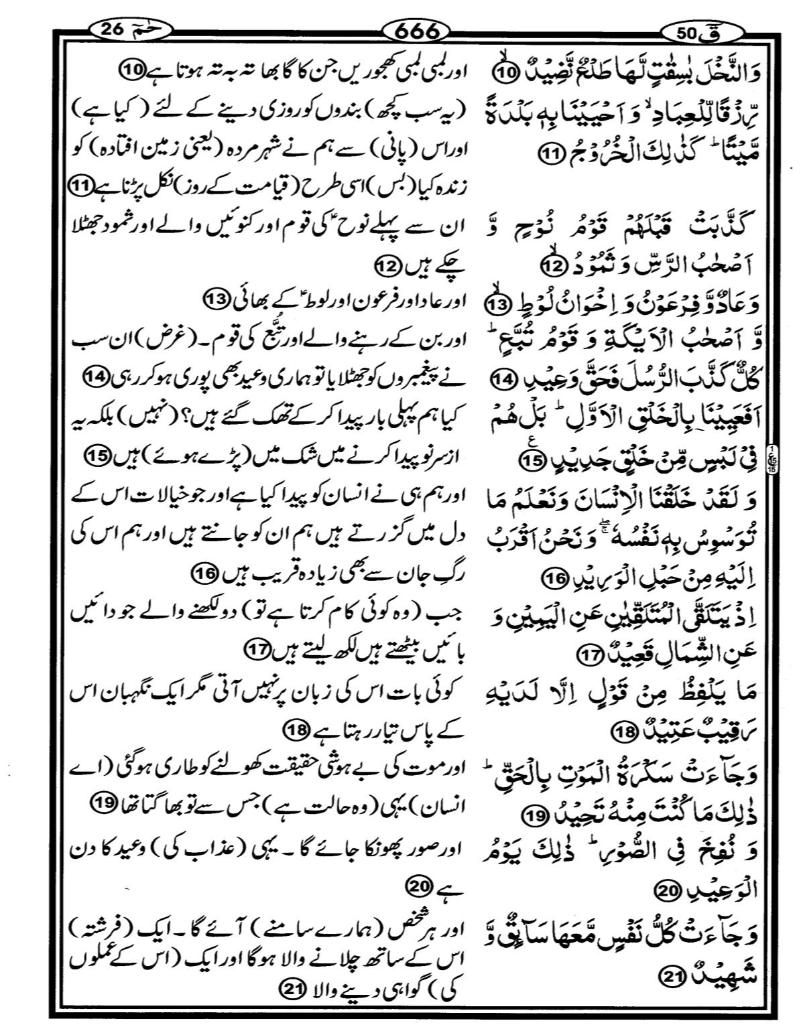 قٓ 50
666
حٰمٓ 26
وَالنَّخۡلَ بٰسِقٰتٍ لَّهَا طَلۡعٌ نَّضِيۡدٌ ۙ 10
رِّزۡقًا لِّلۡعِبَادِ ۙ وَ اَحۡيَيۡنَا بِهٖ بَلۡدَةً
مَّيۡتًا ؕ كَذٰلِكَ الۡخُرُوۡجُ 11
كَذَّبَتۡ قَبۡلَهُمۡ قَوۡمُ نُوۡحٍ وَّ
اَصۡحٰبُ الرَّسِّ وَ ثَمُوۡدُ ۙ 12
وَعَادٌ وَّ فِرۡعَوۡنُ وَ اِخۡوَانُ لُوۡطٍ ۙ 13
وَّ اَصۡحٰبُ الۡاَيۡكَةِ وَ قَوۡمُ تُبَّعٍ ؕ
كُلٌّ كَذَّبَ الرُّسُلَ فَحَقَّ وَعِيۡدِ 14
اَفَعَيِيۡنَا بِالۡخَلۡقِ الۡاَوَّلِ ؕ بَلۡ هُمۡ
فِىۡ لَبۡسٍ مِّنۡ خَلۡقٍ جَدِيۡدٍ 15 ع
وَ لَقَدۡ خَلَقۡنَا الۡاِنۡسَانَ وَنَعۡلَمُ مَا
تُوَسۡوِسُ بِهٖ نَفۡسُهٗ ۖۚ وَ نَحۡنُ اَقۡرَبُ
اِلَيۡهِ مِنۡ حَبۡلِ الۡوَرِيۡدِ 16
اِذۡ يَتَلَقَّى الۡمُتَلَقِّيٰنِ عَنِ الۡيَمِيۡنِ وَ
عَنِ الشِّمَالِ قَعِيۡدٌ 17
مَا يَلۡفِظُ مِنۡ قَوۡلٍ اِلَّا لَدَيۡهِ
رَقِيۡبٌ عَتِيۡدٌ 18
وَ جَآءَتۡ سَكۡرَةُ الۡمَوۡتِ بِالۡحَقِّ ؕ
ذٰلِكَ مَا كُنۡتَ مِنۡهُ تَحِيۡدُ 19
وَ نُفِخَ فِى الصُّوۡرِ ؕ ذٰلِكَ يَوۡمُ
الۡوَعِيۡدِ 20
وَ جَآءَتۡ كُلُّ نَفۡسٍ مَّعَهَا سَآئِقٌ وَّ
شَهِيۡدٌ 21
اور لمبی لمبی کھجوریں جن کا گابھا تہ بہ تہ ہوتا ہے 10
(یہ سب کچھ) بندوں کو روزی دینے کے لئے (کیا ہے)
اور اس (پانی) سے ہم نے شہر مردہ (یعنی زمین افتادہ) کو
زندہ کیا (بس) اسی طرح (قیامت کے روز) نکل پڑنا ہے 11
ان سے پہلے نوحؑ کی قوم اور کنوئیں والے اور ثمود جھٹلا
چکے ہیں 12
اور عاد اور فرعون اور لوطؑ کے بھائی 13
اور بن کے رہنے والے اور تُبَّع کی قوم۔ (غرض) ان سب
نے پیغمبروں کو جھٹلایا تو ہماری وعید بھی پوری ہو کر رہی 14
کیا ہم پہلی بار پیدا کر کے تھک گئے ہیں؟ (نہیں) بلکہ یہ
ازسرنو پیدا کرنے میں شک میں (پڑے ہوئے) ہیں 15
اور ہم ہی نے انسان کو پیدا کیا ہے اور جو خیالات اس کے
دل میں گزرتے ہیں ہم ان کو جانتے ہیں اور ہم اس کی
رگِ جان سے بھی زیادہ قریب ہیں 16
جب (وہ کوئی کام کرتا ہے تو) دو لکھنے والے جو دائیں
بائیں بیٹھتے ہیں لکھ لیتے ہیں 17
کوئی بات اس کی زبان پر نہیں آتی مگر ایک نگہبان اس
کے پاس تیار رہتا ہے 18
اور موت کی بے ہوشی حقیقت کھولنے کو طاری ہو گئی (اے
انسان) یہی (وہ حالت ہے) جس سے تو بھاگتا تھا 19
اور صور پھونکا جائے گا۔ یہی (عذاب کی) وعید کا دن
ہے 20
اور ہر شخص (ہمارے سامنے) آئے گا۔ ایک (فرشتہ)
اس کے ساتھ چلانے والا ہو گا اور ایک (اس کے عملوں
کی) گواہی دینے والا 21